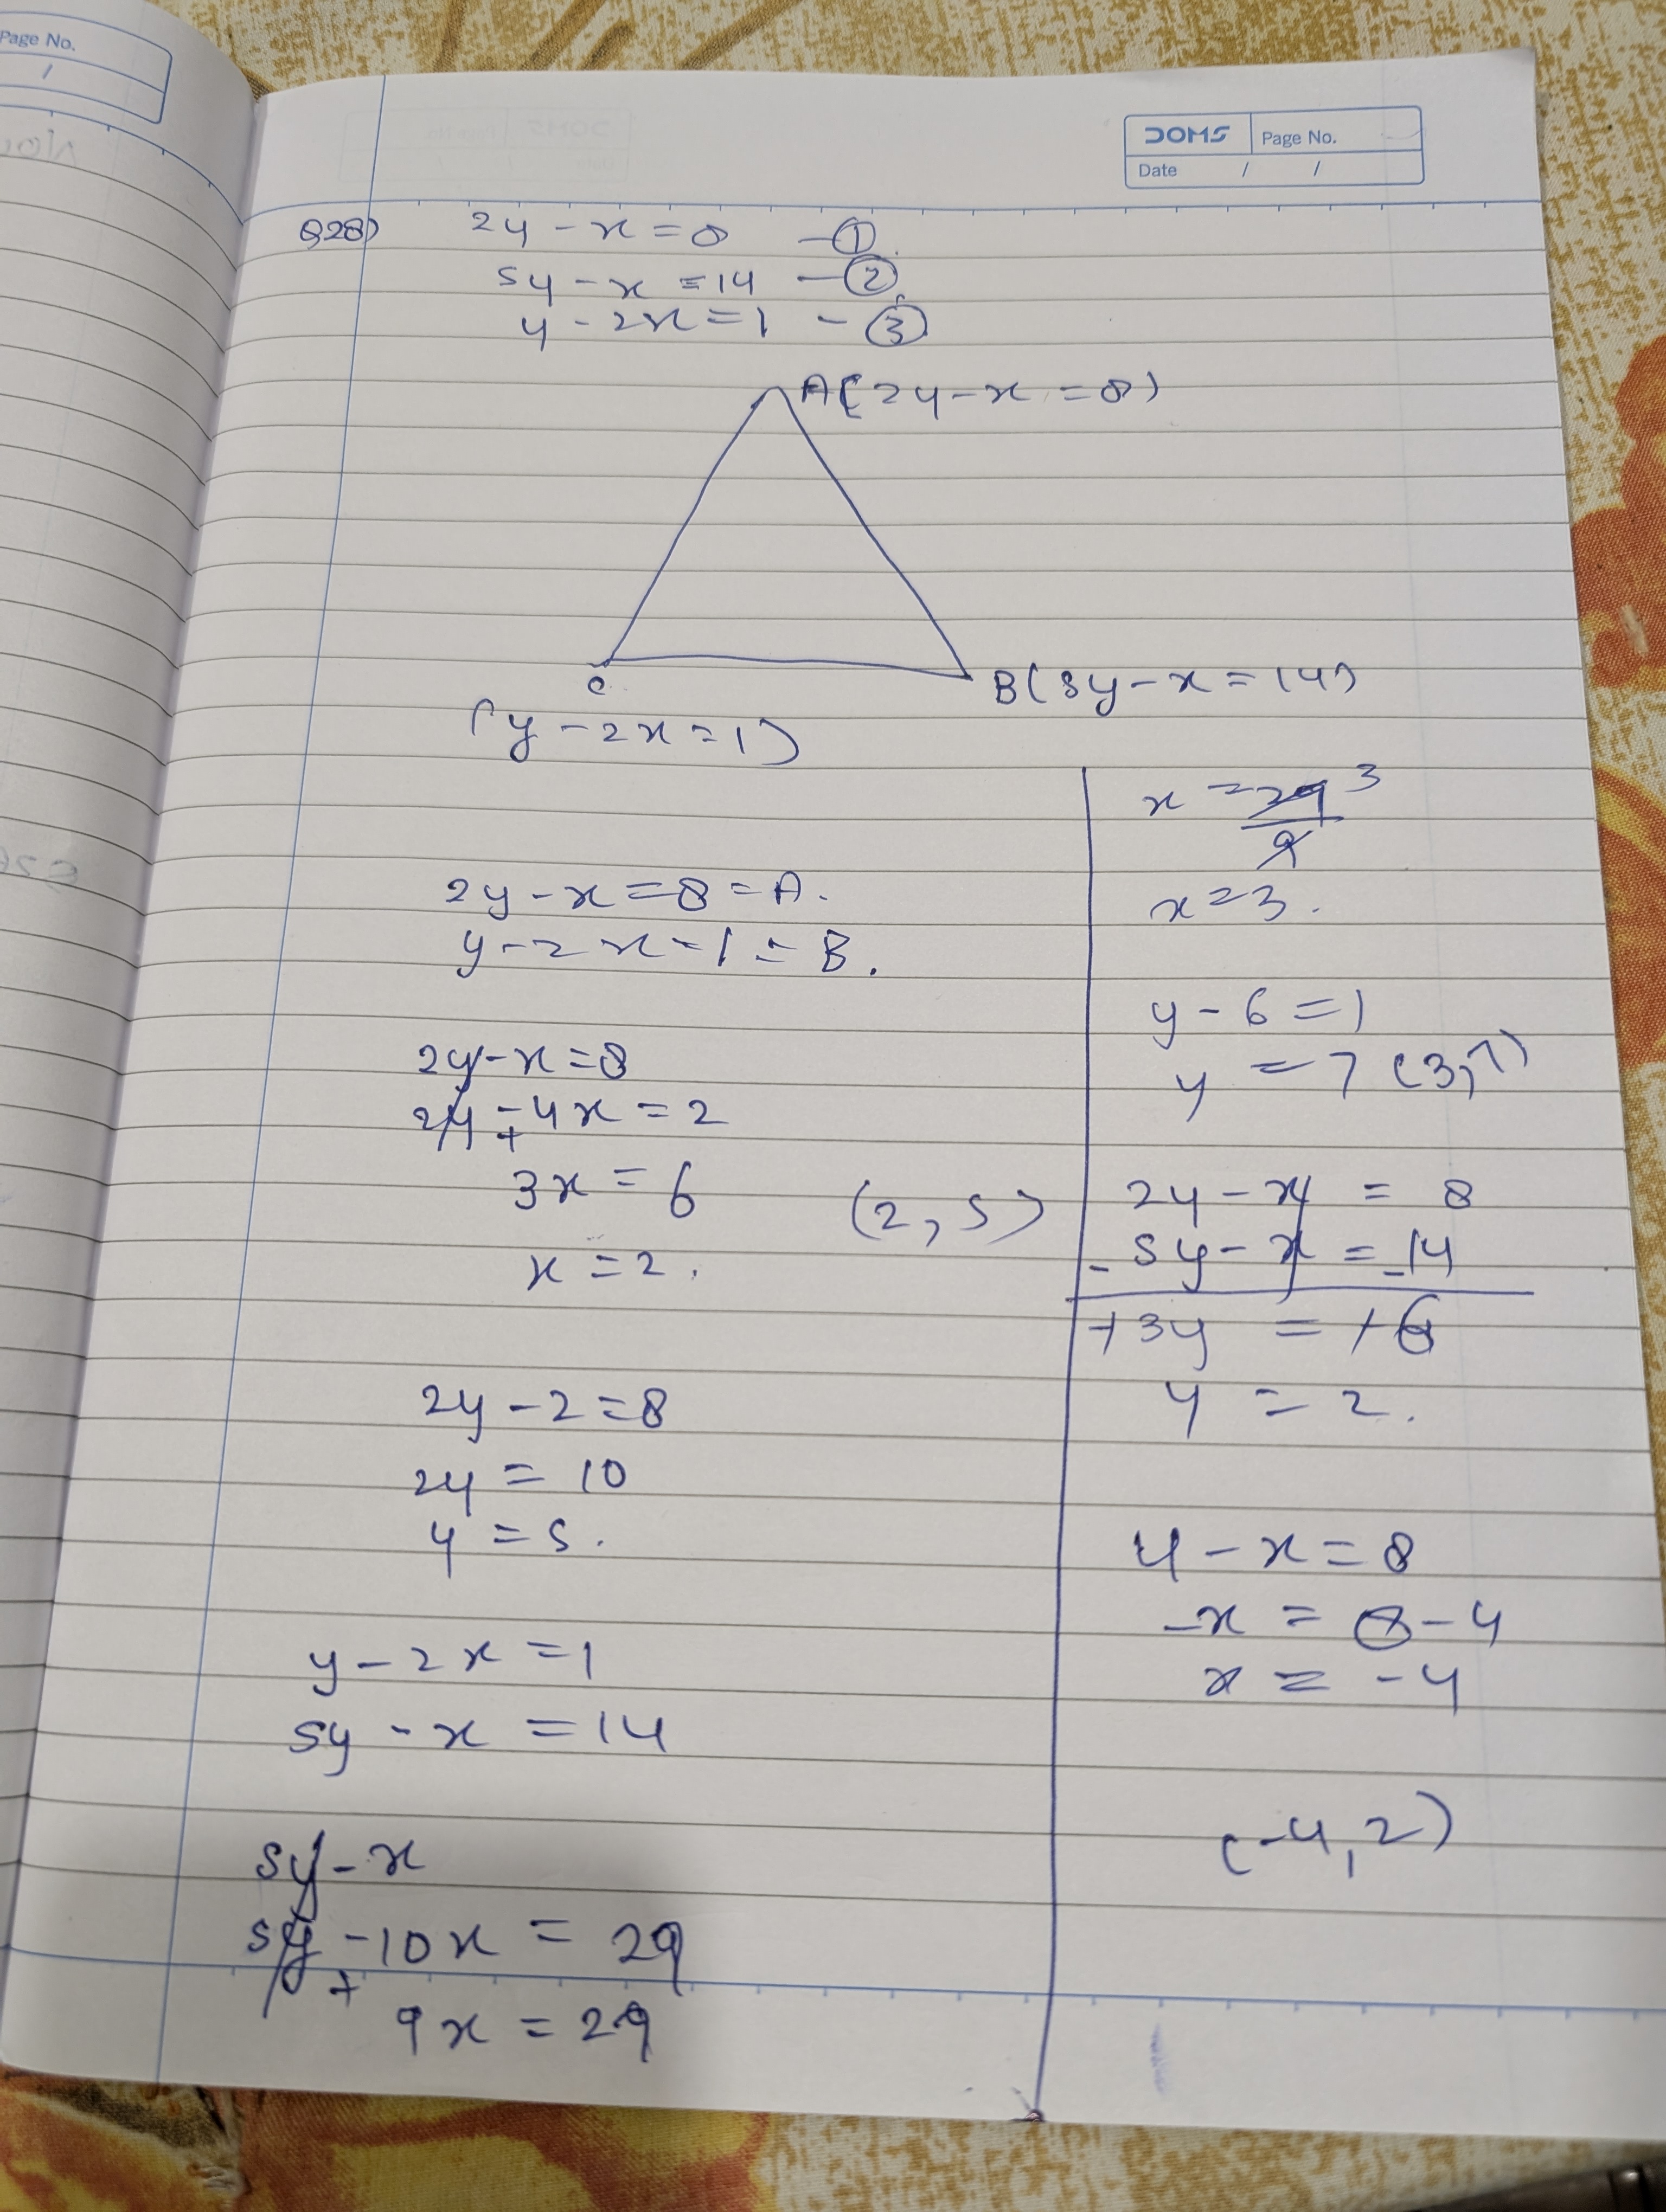 Page No.
DOMS Page No.
Date / /
Q28) 2y - x = 8 - ①
5y - x = 14 - ②
y - 2x = 1 - ③
A(2y - x = 8)
C
B(5y - x = 14)
(y - 2x = 1)
2y - x = 8 = A.
y - 2x = 1 = B.
2y - x = 8
2y - 4x = 2
+
3x = 6
(2, 5)
x = 2.
2y - 2 = 8
2y = 10
y = 5.
y - 2x = 1
5y - x = 14
5y - x
5y - 10x = 29
+
9x = 29
x = 29 3
9
x = 3.
y - 6 = 1
y = 7 (3, 7)
2y - x = 8
- 5y - x = -14
+3y = +6
y = 2.
4 - x = 8
-x = 8 - 4
x = -4
(-4, 2)